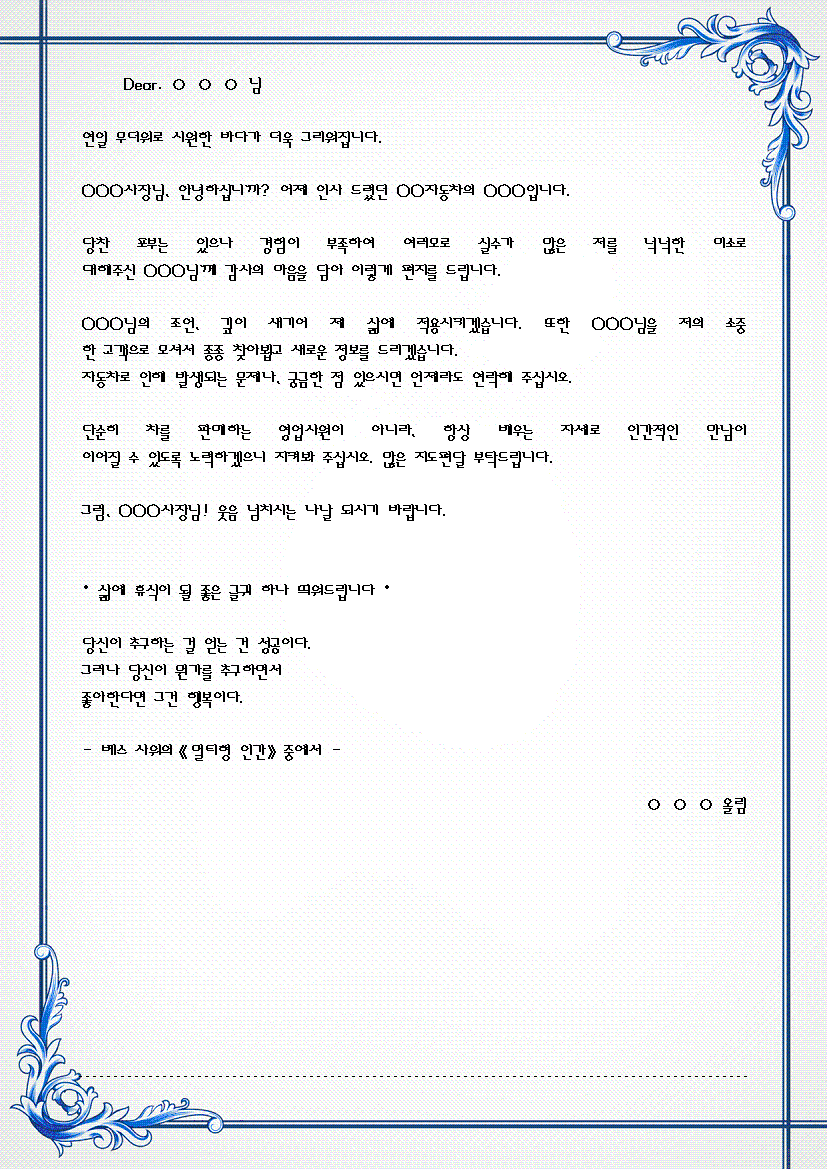 Dear. ○ ○ ○ 님
연일 무더위로 시원한 바다가 더욱 그리워집니다.
○○○사장님, 안녕하십니까? 어제 인사 드렸던 ○○자동차의 ○○○입니다.
당찬 포부는 있으나 경험이 부족하여 여러모로 실수가 많은 저를 넉넉한 미소로
대해주신 ○○○님께 감사의 마음을 담아 이렇게 편지를 드립니다.
○○○님의 조언, 깊이 새기어 제 삶에 적용시키겠습니다. 또한 ○○○님을 저의 소중
한 고객으로 모셔서 종종 찾아뵙고 새로운 정보를 드리겠습니다.
자동차로 인해 발생되는 문제나, 궁금한 점 있으시면 언제라도 연락해 주십시오.
단순히 차를 판매하는 영업사원이 아니라, 항상 배우는 자세로 인간적인 만남이
이어질 수 있도록 노력하겠으니 지켜봐 주십시오. 많은 지도편달 부탁드립니다.
그럼, ○○○사장님! 웃음 넘치시는 나날 되시기 바랍니다.
* 삶에 휴식이 될 좋은 글귀 하나 띄워드립니다 *
당신이 추구하는 걸 얻는 건 성공이다.
그러나 당신이 뭔가를 추구하면서
좋아한다면 그건 행복이다.
- 베스 사위의《멀티형 인간》중에서 -
○ ○ ○ 올림